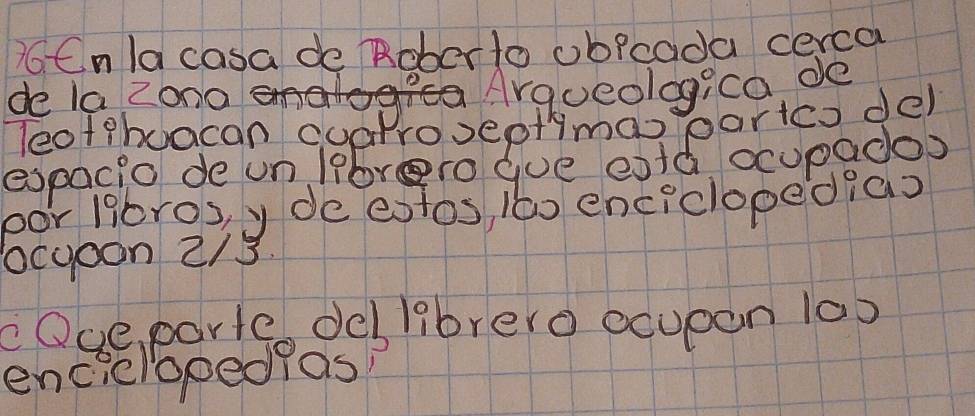 36 En la casa de Roberto ubicada cerca
de la Zona Arqueologica de
Teotihuacan cuatro septimas partes del
espacio de un librero que está ocupados
por libros, y de estos, las enciclopedias
ocupan 2/3.
¿Que parte del librero ocupan las
enciclopedias?